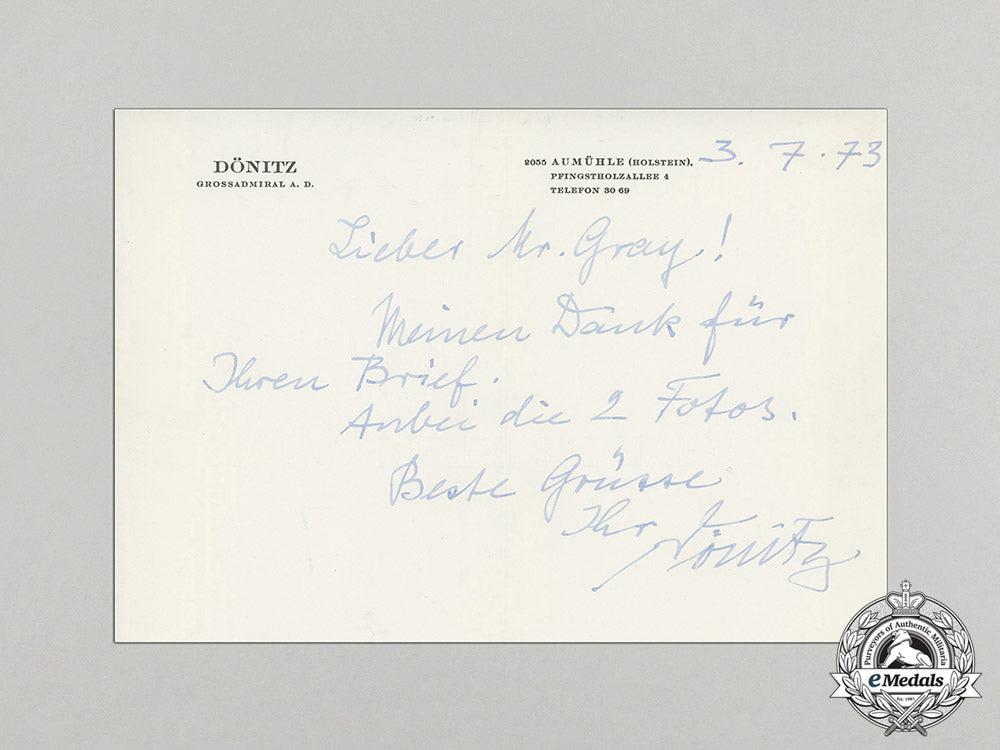 DÖNITZ
GROSSADMIRAL A. D.
2055 AUMÜHLE (HOLSTEIN), 3. 7. 73
PFINGSTHOLZALLEE 4
TELEFON 30 69
Lieber Mr. Gray!
Meinen Dank für
Ihren Brief.
Anbei die 2 Fotos.
Beste Grüsse
Ihr Dönitz
Purveyors of Authentic Militaria
eMedals